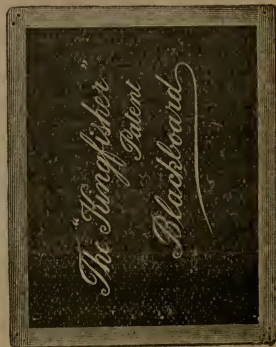 The "Kingfisher"
Patent
Blackboard